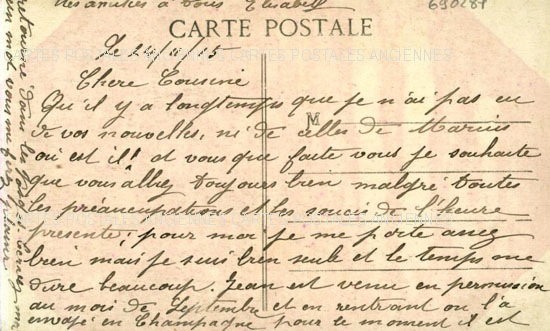 mes amitiés à vous Elisabeth
690281
CARTE POSTALE
CARTES POSTALES ANCIENNES CARTES POSTALES ANCIENNES
Chere Cousine
Qu'il y a longtemps que je n'ai pas eu
de vos nouvelles, ni de celles de Marius
où est il! et vous que faite vous je souhaite
que vous allez toujours bien malgré toutes
les préoccupations et les soucis de l'heure
presente; pour moi je me porte assez
bien mais je suis bien seule et le temps me
dure beaucoup. Jean est venu en permission
au mois de Septembre et en rentrant on l'a
envoyé en Champagne pour le moment il est
retourné dans les
un mot vous me ferez plaisir